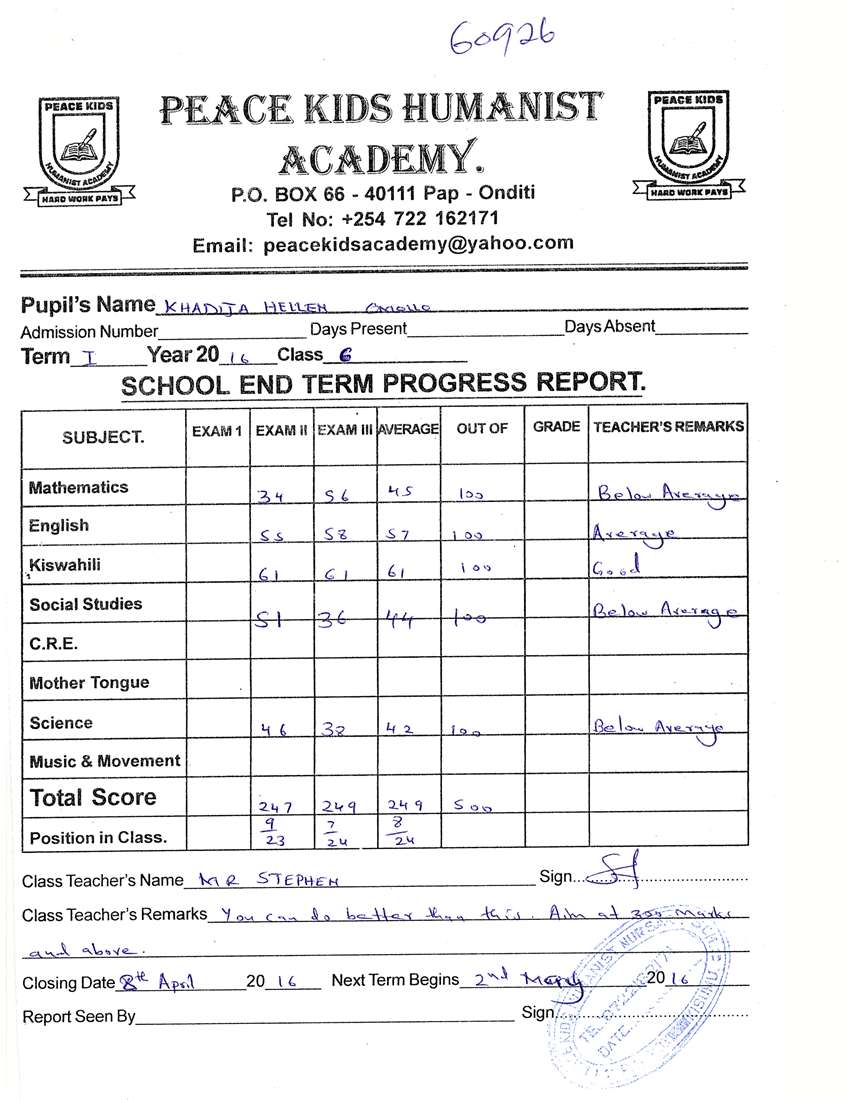 60926
PEACE KIDS
HUMANIST ACADEMY
HARD WORK PAYS
PEACE KIDS HUMANIST
ACADEMY.
PEACE KIDS
HUMANIST ACADEMY
HARD WORK PAYS
P.O. BOX 66 - 40111 Pap - Onditi
Tel No: +254 722 162171
Email: peacekidsacademy@yahoo.com
Pupil's Name KHADIJA HELLEN OMOLLO
Admission Number Days Present Days Absent
Term I Year 20 16 Class 6
SCHOOL END TERM PROGRESS REPORT.
SUBJECT. EXAM 1 EXAM II EXAM III AVERAGE OUT OF GRADE TEACHER'S REMARKS
Mathematics 34 56 45 100 Below Average
English 55 58 57 100 Average
Kiswahili 61 61 61 100 Good
Social Studies 51 36 44 100 Below Average
C.R.E.
Mother Tongue
Science 46 38 42 100 Below Average
Music & Movement
Total Score 247 249 249 500
Position in Class. 9/23 7/24 8/24
Class Teacher's Name MR STEPHEN Sign...
Class Teacher's Remarks You can do better than this. Aim at 300 marks
and above.
Closing Date 8th April 20 16 Next Term Begins 2nd May 20 16
Report Seen By Sign...
DATE